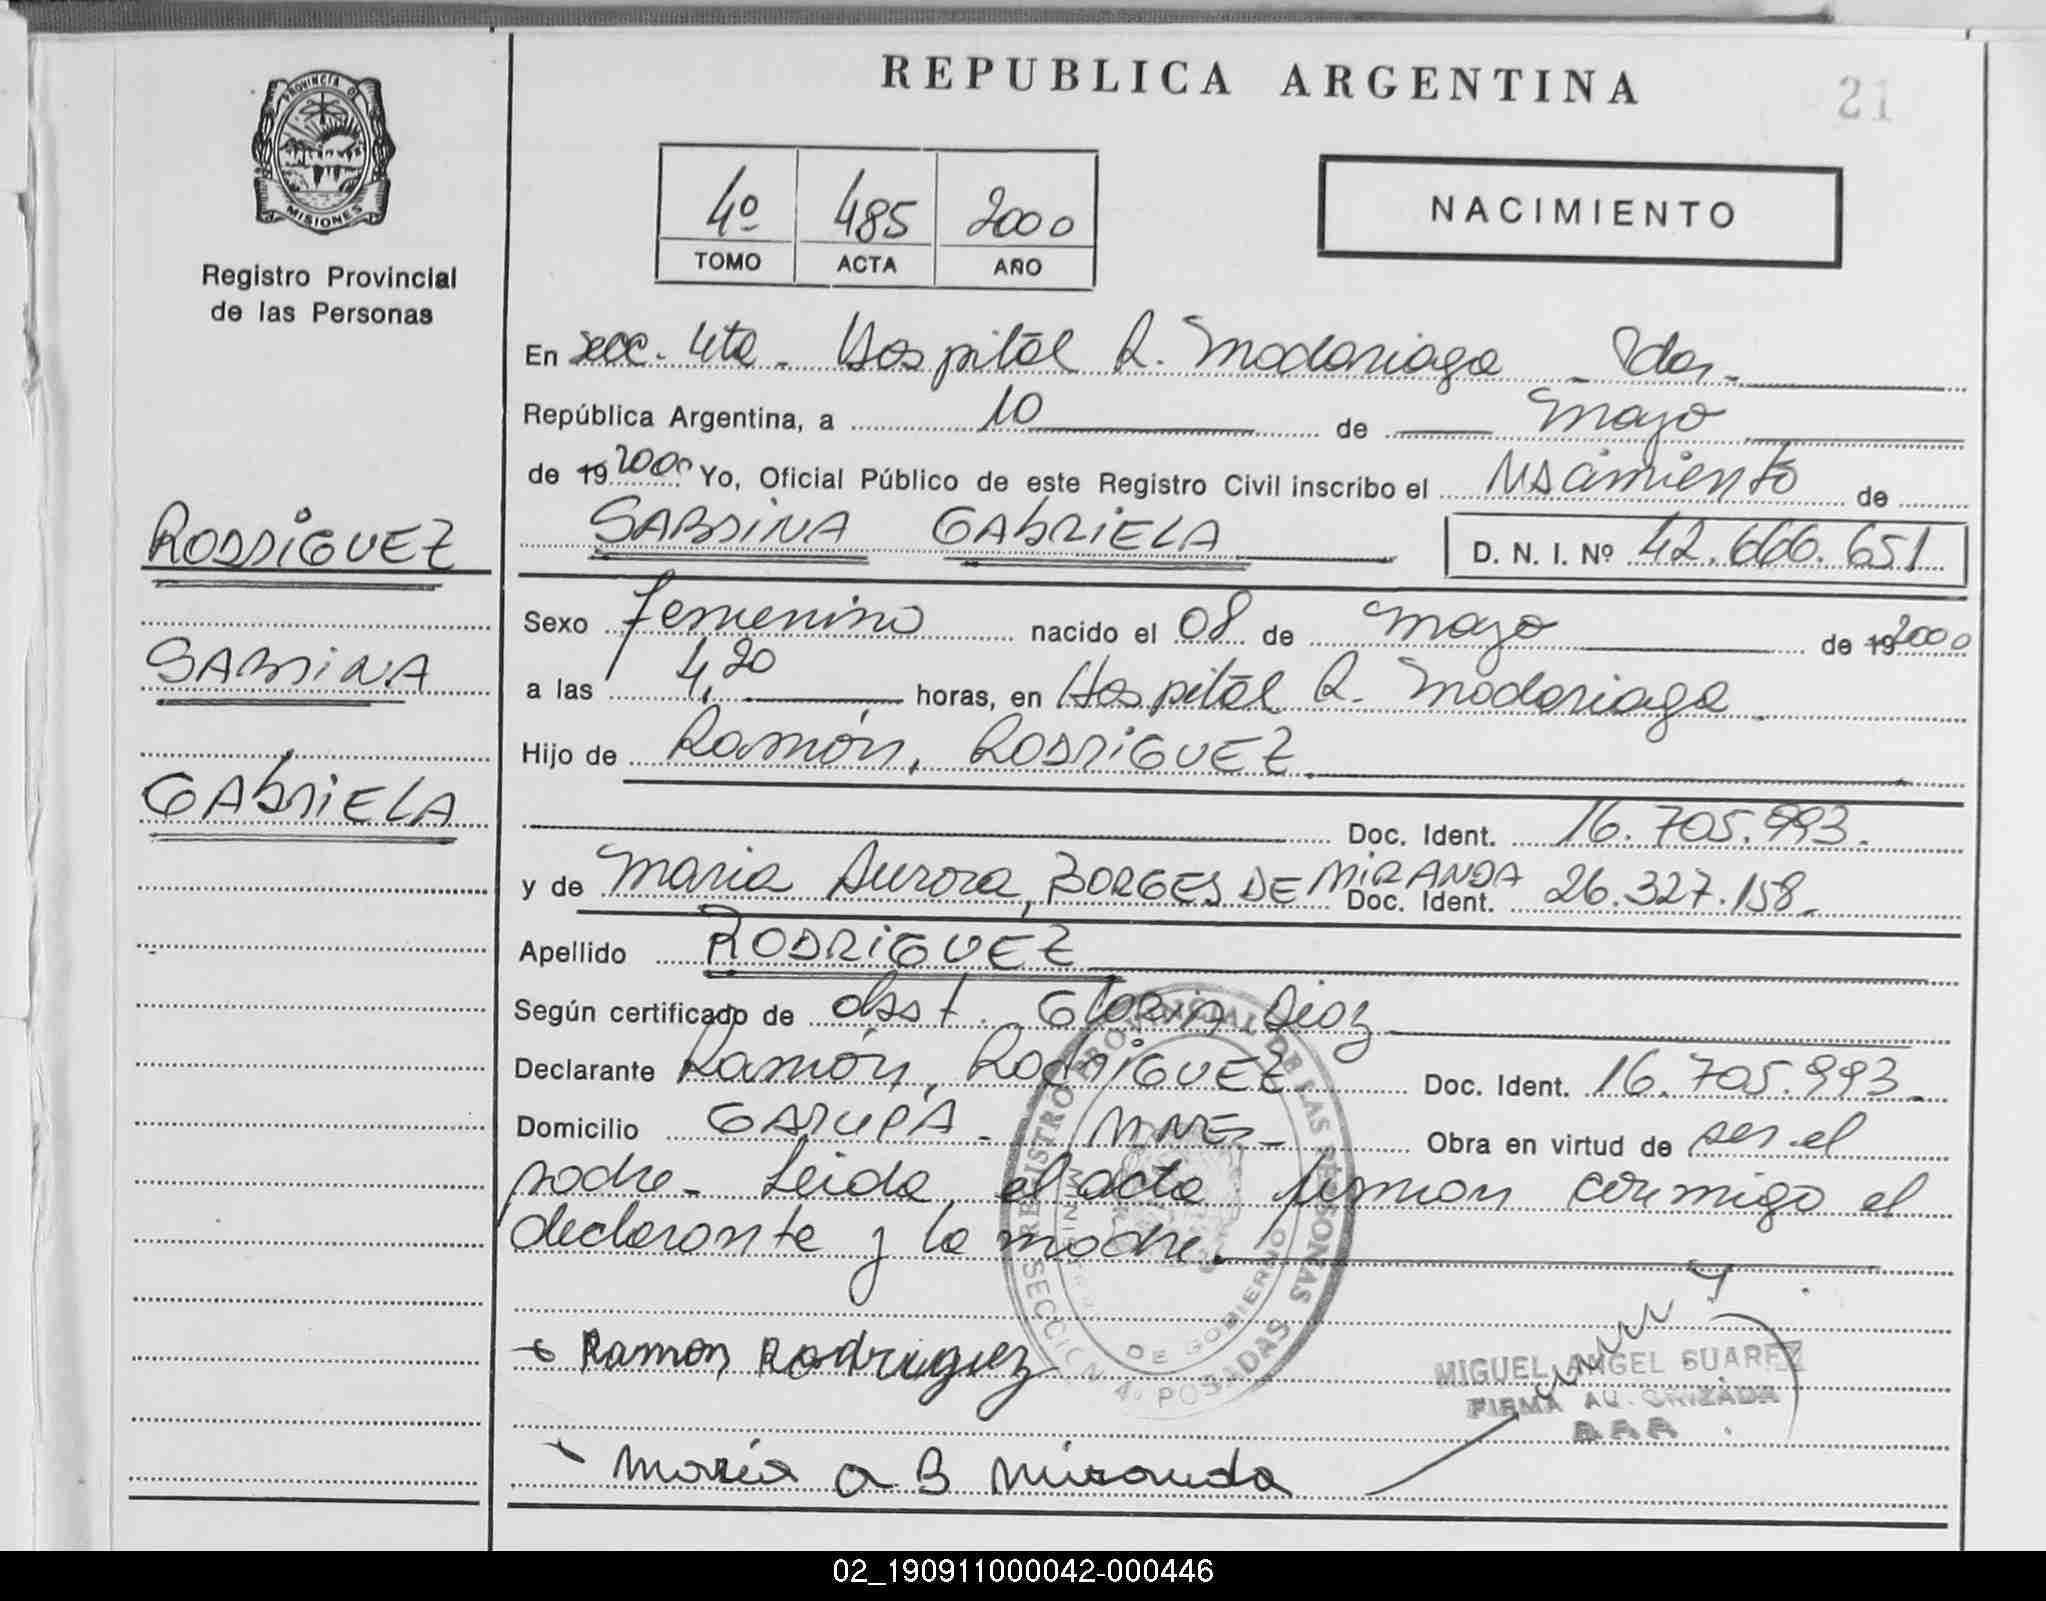 REPUBLICA ARGENTINA
21
PROVINCIA DE
MISIONES
Registro Provincial
de las Personas
4º 485 2000
TOMO ACTA AÑO
NACIMIENTO
En secc. 4ta - Hospital R. Madariaga - Pdas -
República Argentina, a 10 de Mayo
de 19 2000 Yo, Oficial Público de este Registro Civil inscribo el Nacimiento de
SABRINA GABRIELA D. N. I. Nº 42.666.651
RODRIGUEZ
SABRINA
GABRIELA
Sexo Femenino nacido el 08 de Mayo de 19 2000
a las 4,20 horas, en Hospital R. Madariaga
Hijo de Ramón, RODRIGUEZ
Doc. Ident. 16.705.993.
y de Maria Aurora, BORGES DE MIRANDA Doc. Ident. 26.327.158.
Apellido RODRIGUEZ
Según certificado de obst. Gloria Diaz
Declarante Ramón, RodriGUEZ Doc. Ident. 16.705.993.
Domicilio GARUPA - MNES - Obra en virtud de ser el
padre - Leida el acta firman conmigo el
declarante y la madre.
REGISTRO PROVINCIAL DE LAS PERSONAS
SECCION 4º POSADAS
DE GOBIERNO
Ramon Rodriguez
MIGUEL ANGEL SUAREZ
FIRMA AUTORIZADA
Maria A B Miranda
02_190911000042-000446